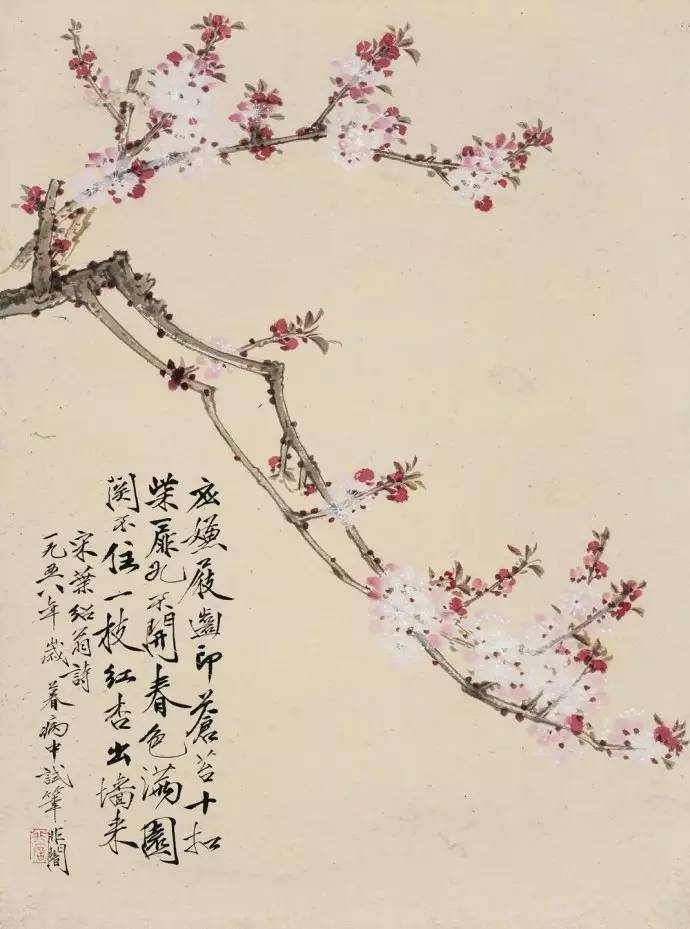 应嫌屐齒印蒼苔十扣
柴扉九不開春色滿園
関不住一枝紅杏出墻来
宋葉紹翁詩
一九五八年歲暮病中試筆 非闇